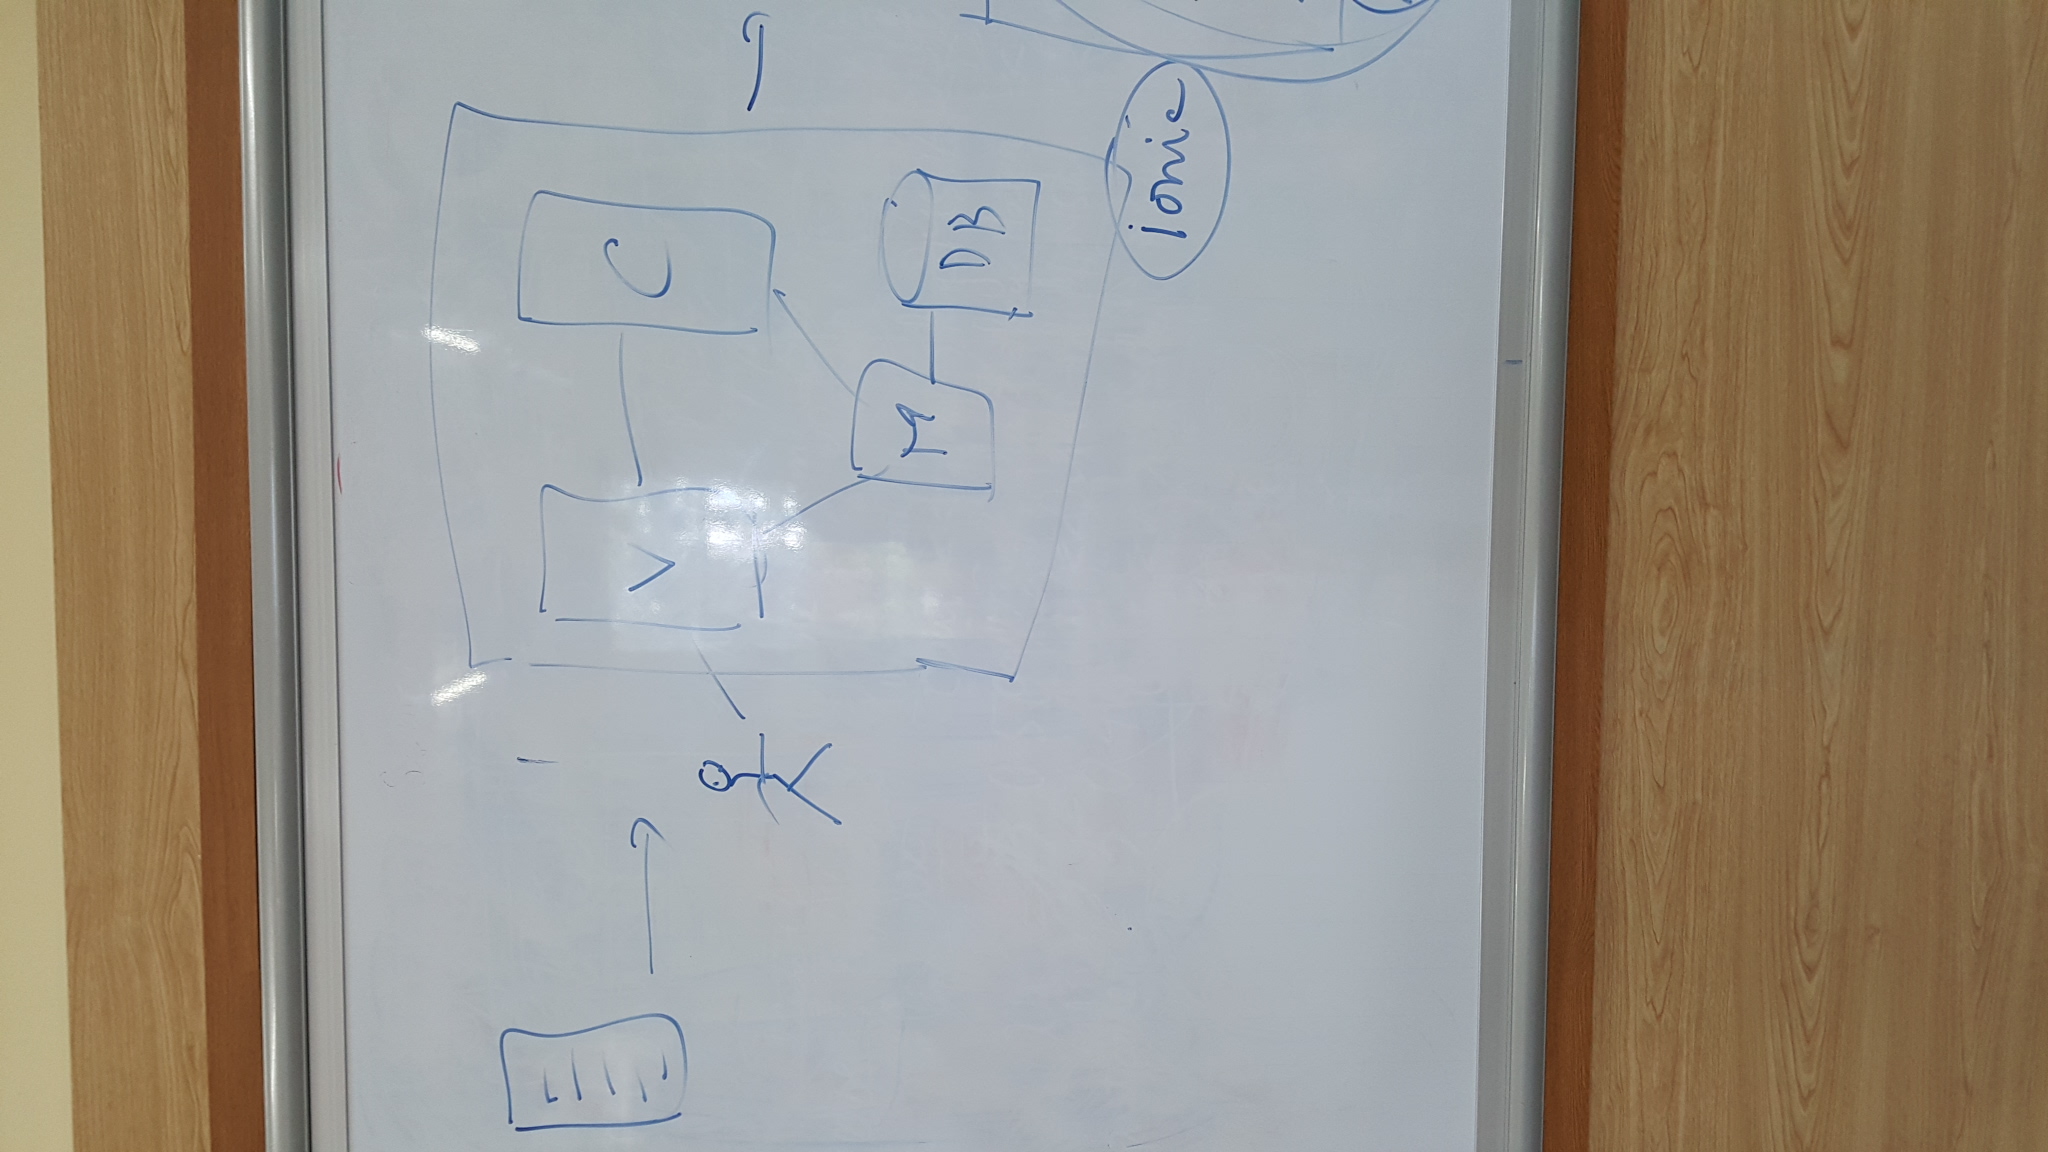 V
C
M
DB
ionic